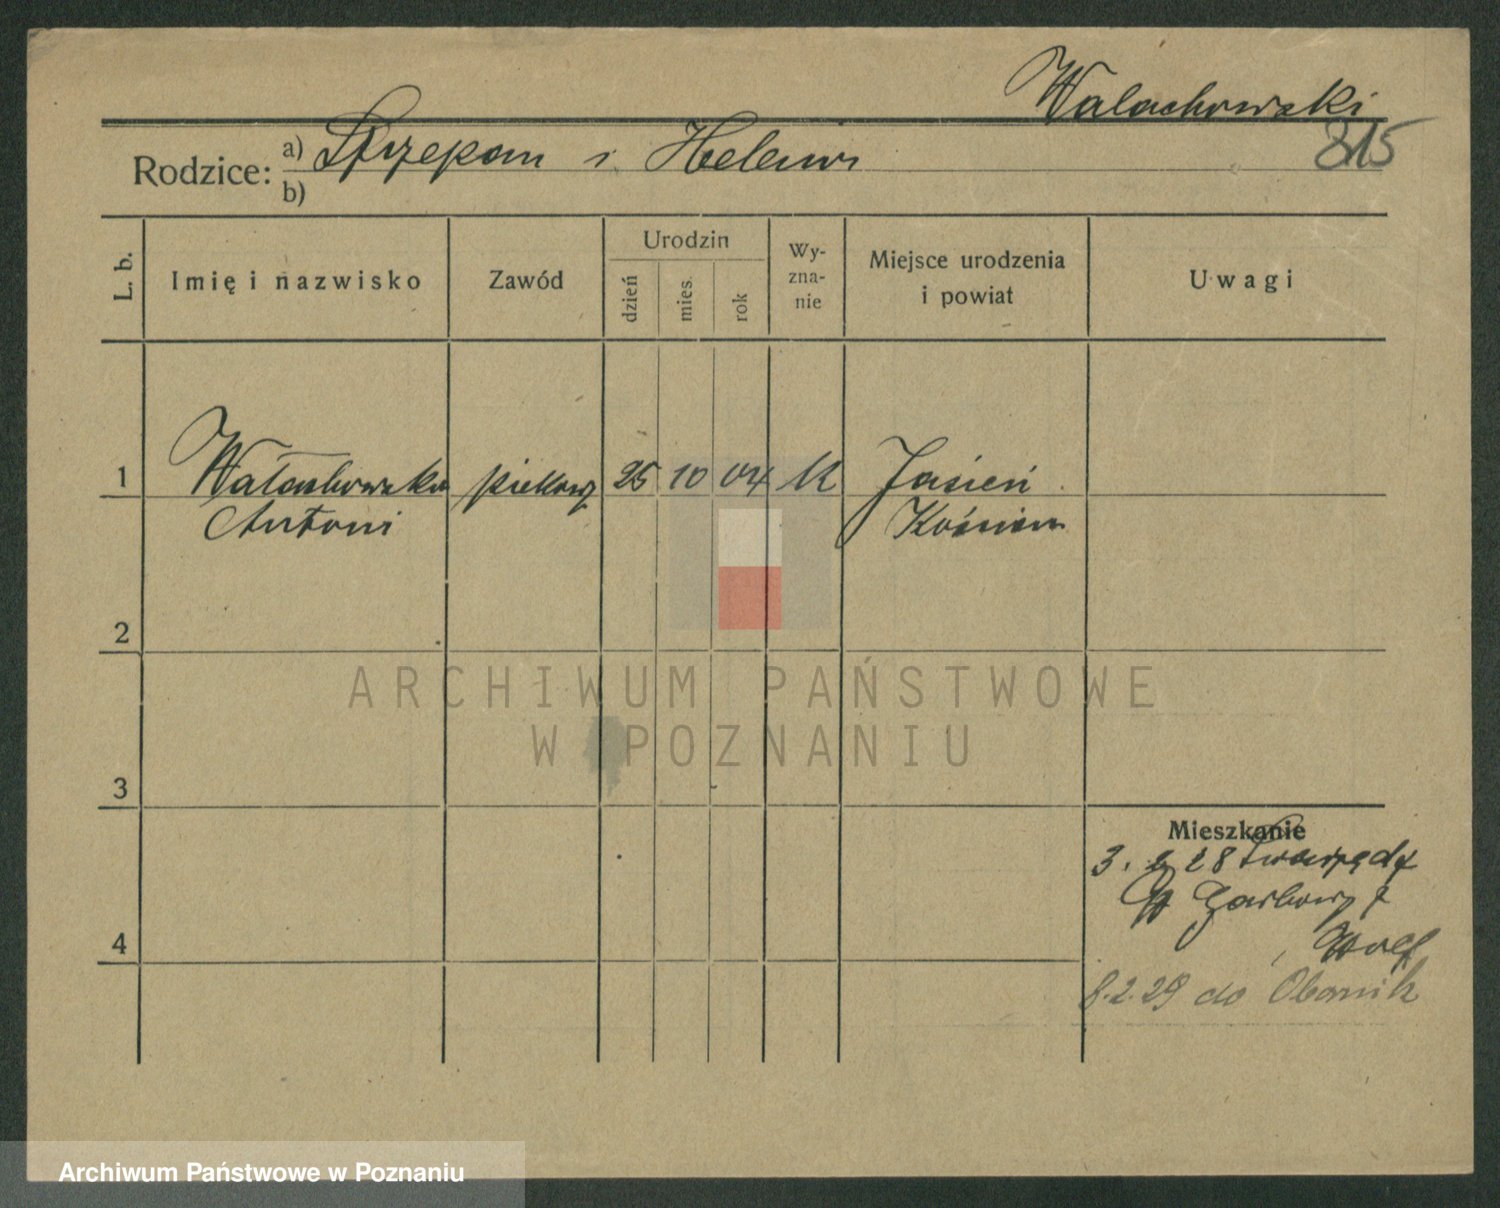 Walachowski
815
Rodzice: a) Szczepan i Helena
b)
L. b.
Imię i nazwisko
Zawód
Urodzin
dzień
mies.
rok
Wy-
zna-
nie
Miejsce urodzenia
i powiat
Uwagi
1
Wałachowski piekarz 25 10 04 K Jasień
Antoni Kościan
2
ARCHIWUM PAŃSTWOWE
W POZNANIU
3
Mieszkanie
3. 2 28
Garbary 7
Wolf
4
8.2.29 do Obornik
Archiwum Państwowe w Poznaniu